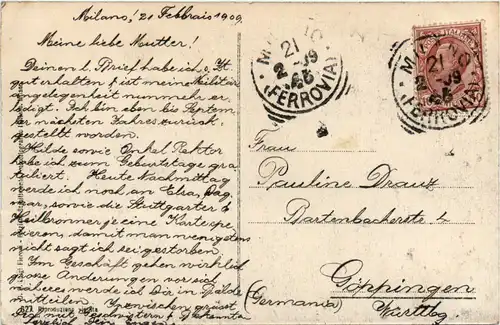 Milano, 21 Febbraio 1909
Meine liebe Mutter!
Deinen l. Brief habe ich
gut erhalten & ist meine Militär
angelegenheit nunmehr er-
ledigt. Ich bin eben bis Septem-
ber nächsten Jahres zurück-
gestellt worden.
Hilde sowie Onkel Rektor
habe ich zum Geburtstage gra-
tuliert. Heute Nachmittag
werde ich noch an Elsa, Dag
mar, sowie die Stuttgarter &
Heilbronner je eine Karte spe-
dieren, damit man wenigstens
nicht sagt ich sei gestorben
Im Geschäft gehen wirklich
grosse Änderungen vor sich
näheres werde ich Dir in Bälde
mitteilen. Inzwischen grüsst
Dich mit Geschwistern & Bekannten
herzlich Dein
MILANO
21
2-09
FERROVIA
MILANO
21
2-09
FERROVIA
Frau
Pauline Drauz
Bartenbacherste 4
Göppingen
(Germania) Württbg
671